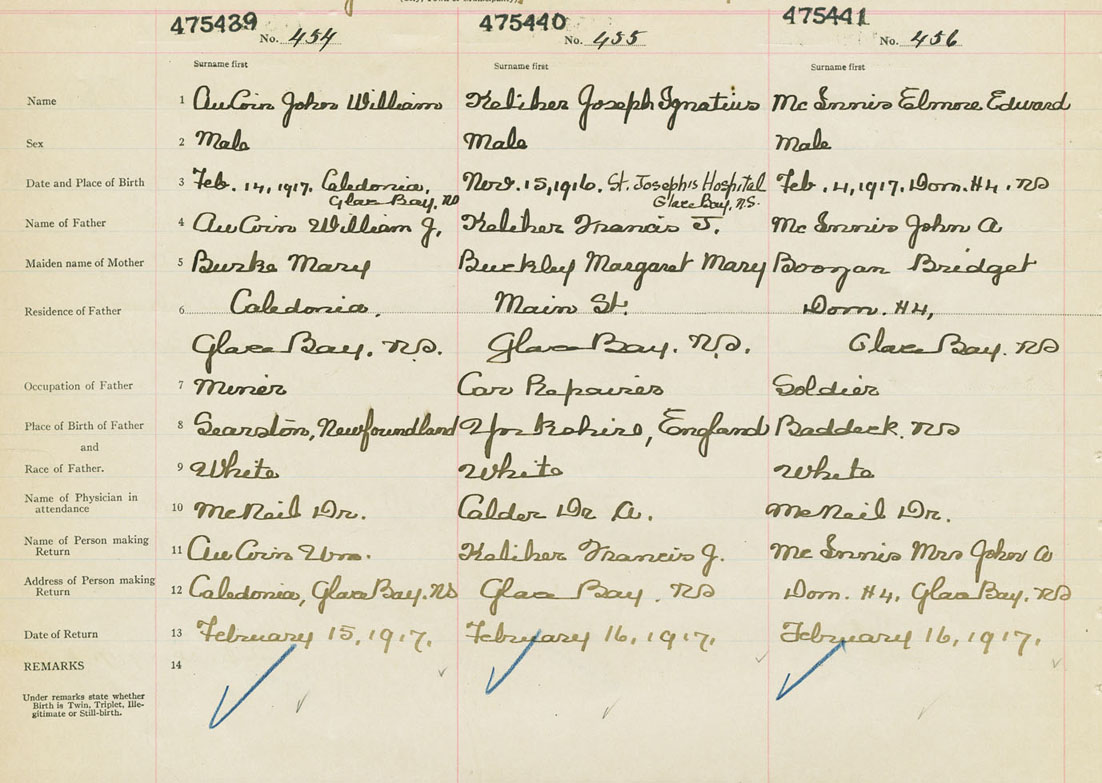 (City, Town or Municipality)
475439 475440 475441
No. 454 No. 455 No. 456
Surname first Surname first Surname first
Name 1 AuCoin John William Keliher Joseph Ignatius Mc Innis Elmore Edward
Sex 2 Male Male Male
Date and Place of Birth 3 Feb. 14, 1917. Caledonia, Nov. 15, 1916. St. Josephs Hospital Feb. 4, 1917. Dom. #4. NS
Glace Bay, NS Glace Bay, N.S.
Name of Father 4 AuCoin William J, Keliher Francis J. Mc Innis John A
Maiden name of Mother 5 Burke Mary Buckley Margaret Mary Boozan Bridget
Residence of Father 6 Caledonia, Main St. Dom. #4,
Glace Bay. N.S. Glace Bay. N.S. Glace Bay. NS
Occupation of Father 7 Miner Car Repairer Soldier
Place of Birth of Father 8 Searston, Newfoundland Yorkshire, England Baddeck. NS
and
Race of Father. 9 White White White
Name of Physician in
attendance 10 McNeil Dr. Calder Dr A. McNeil Dr.
Name of Person making
Return 11 AuCoin Wm. Keliher Francis J. Mc Innis Mrs John A
Address of Person making
Return 12 Caledonia, Glace Bay. NS Glace Bay. NS Dom. #4, Glace Bay. NS
Date of Return 13 February 15, 1917. February 16, 1917. February 16, 1917.
REMARKS 14
Under remarks state whether
Birth is Twin, Triplet, Ille-
gitimate or Still-birth.